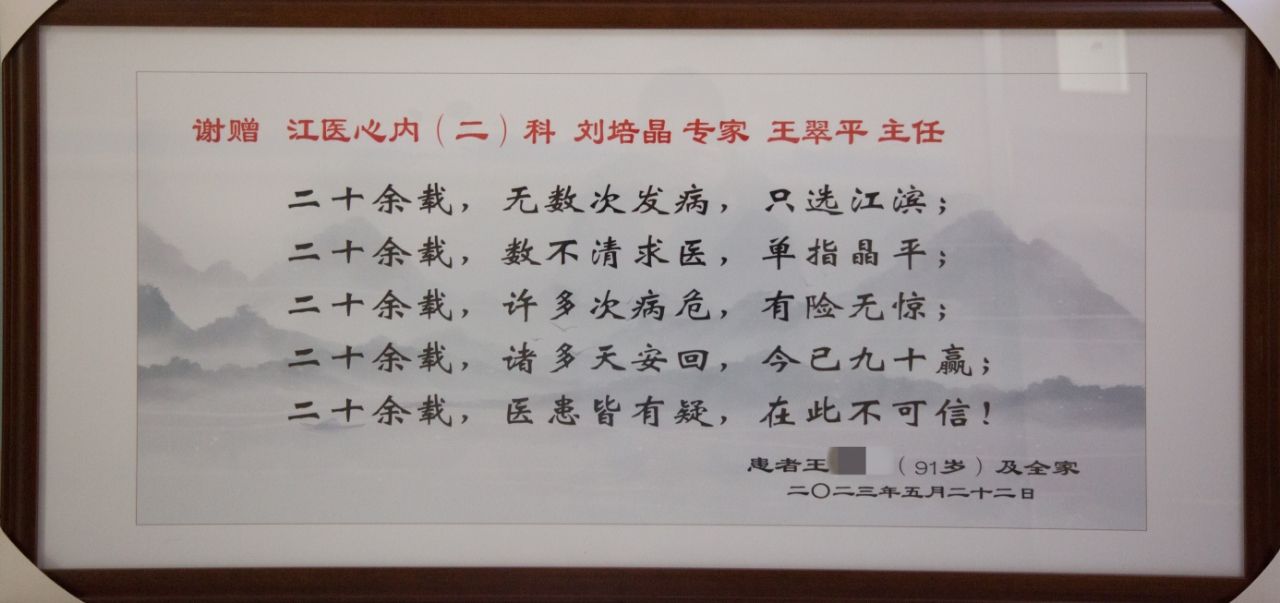 谢赠 江医心内（二）科 刘培晶 专家 王翠平 主任
二十余载，无数次发病，只选江滨；
二十余载，数不清求医，单指晶平；
二十余载，许多次病危，有险无惊；
二十余载，诸多天安回，今已九十赢；
二十余载，医患皆有疑，在此不可信！
患者王 （91岁）及全家
二〇二三年五月二十二日